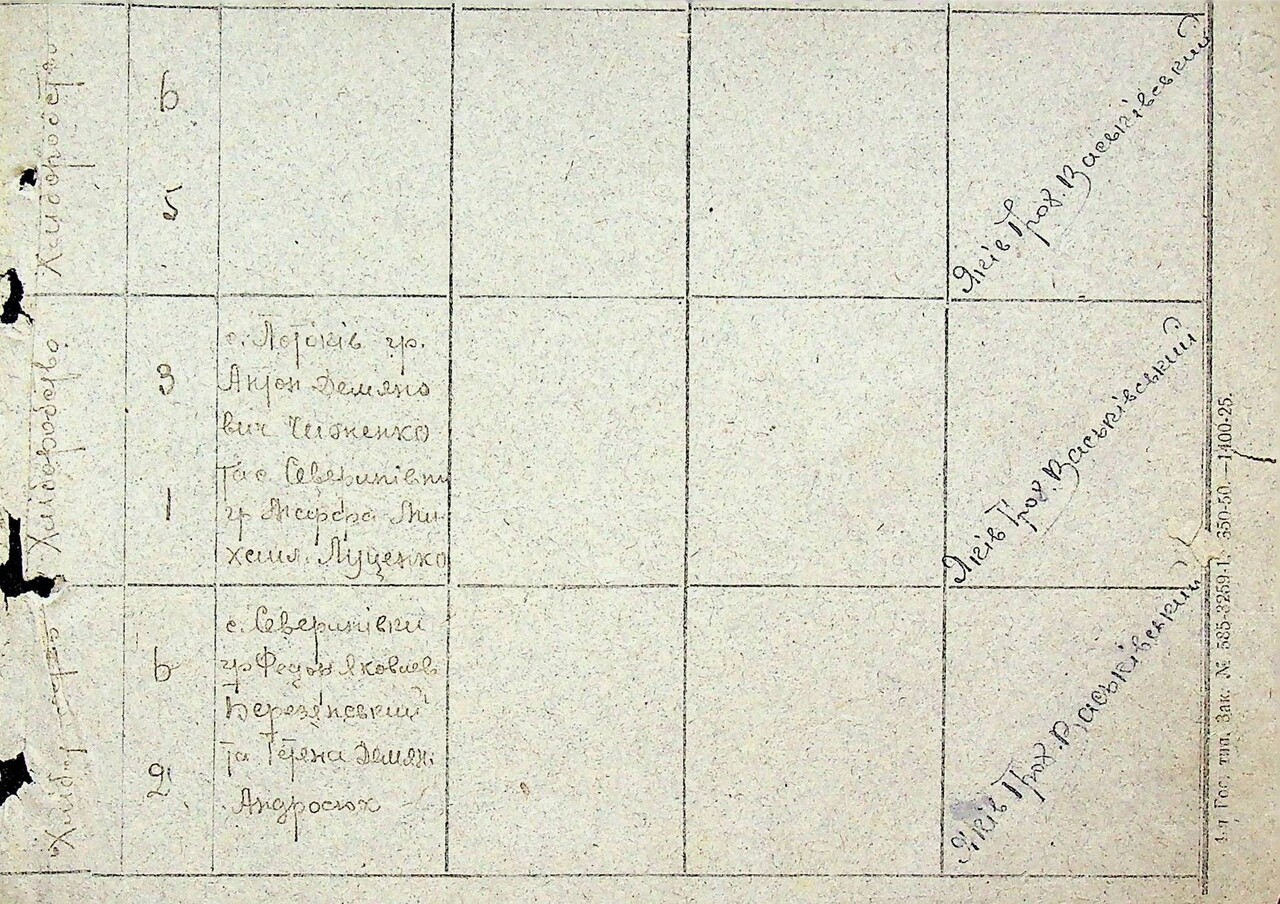 Хліборобство
6
5
Яків Трох. Васьківський
Хліборобство
3
1
с. Лотоків гр.
Антон Демяно
вич Чиженко
та с Северинівки
гр Марфа Ми
хаил. Луценко
Яків Трох. Васьківський
Хлібор
6
2
с. Северинівки
гр Федон Яковлев
Березянський
та Тетяна Демян.
Андросюк
Яків Трох. Васьківський
4-а Гос. тип. Зак. № 585-3259-1. 350-50.—1400-25.